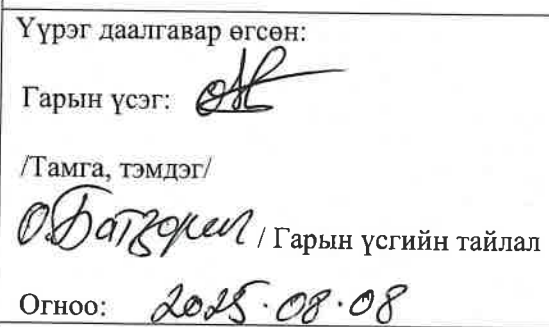 Үүрэг даалгавар өгсөн:
Гарын үсэг:
/Тамга, тэмдэг/
О.Батзориг / Гарын үсгийн тайлал
Огноо: 2025.08.08